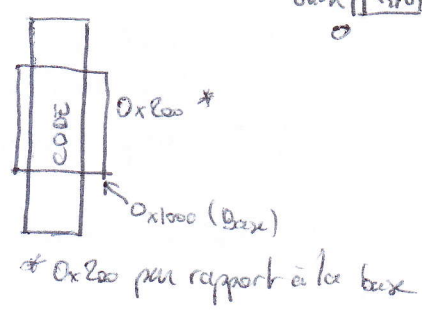 0x200 *
CODE
0x1000 (Base)
* 0x200 par rapport à la base